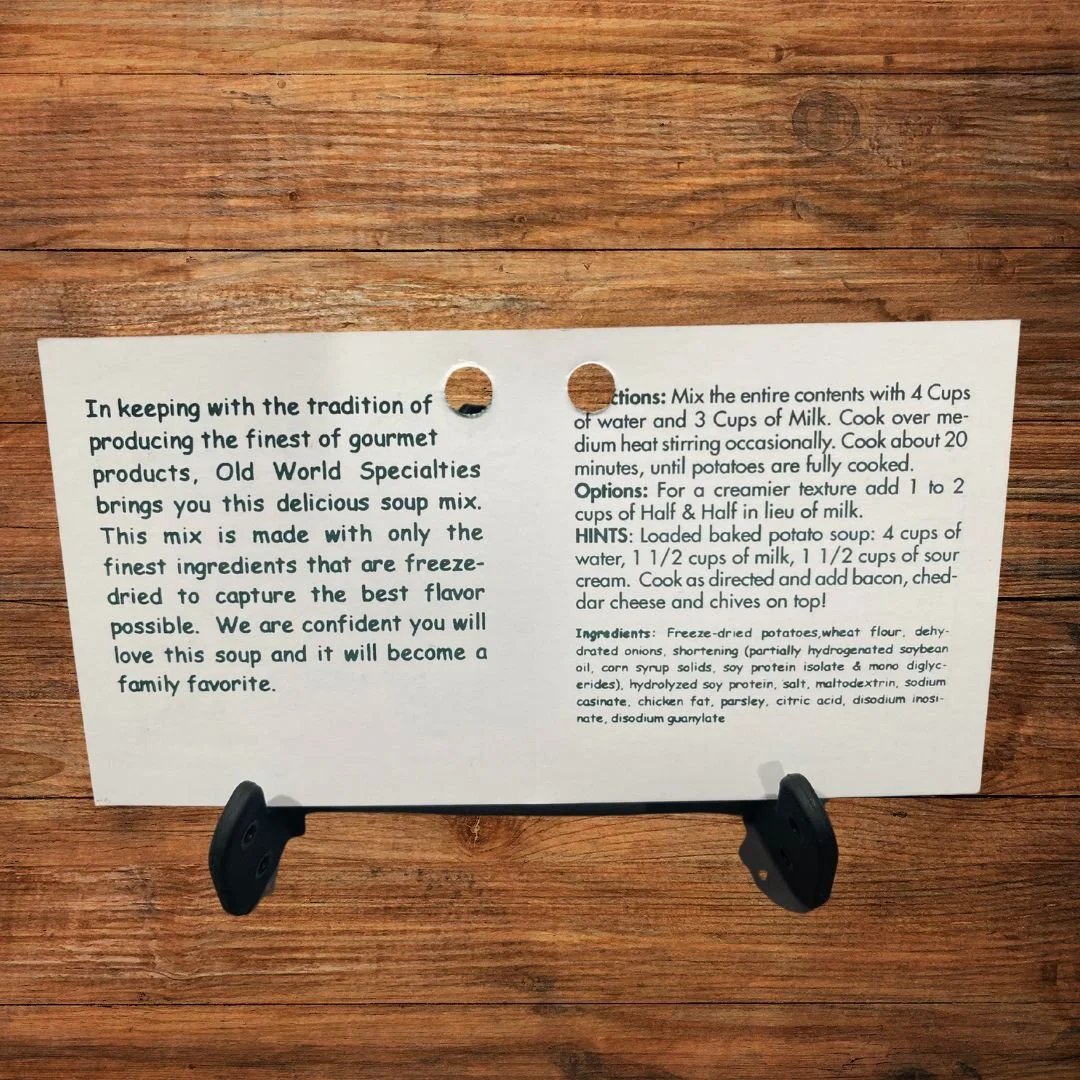 In keeping with the tradition of
producing the finest of gourmet
products, Old World Specialties
brings you this delicious soup mix.
This mix is made with only the
finest ingredients that are freeze-
dried to capture the best flavor
possible. We are confident you will
love this soup and it will become a
family favorite.
ctions: Mix the entire contents with 4 Cups
of water and 3 Cups of Milk. Cook over me-
dium heat stirring occasionally. Cook about 20
minutes, until potatoes are fully cooked.
Options: For a creamier texture add 1 to 2
cups of Half & Half in lieu of milk.
HINTS: Loaded baked potato soup: 4 cups of
water, 1 1/2 cups of milk, 1 1/2 cups of sour
cream. Cook as directed and add bacon, ched-
dar cheese and chives on top!
Ingredients: Freeze-dried potatoes,wheat flour, dehy-
drated onions, shortening (partially hydrogenated soybean
oil, corn syrup solids, soy protein isolate & mono diglyc-
erides), hydrolyzed soy protein, salt, maltodextrin, sodium
casinate, chicken fat, parsley, citric acid, disodium inosi-
nate, disodium guanylate